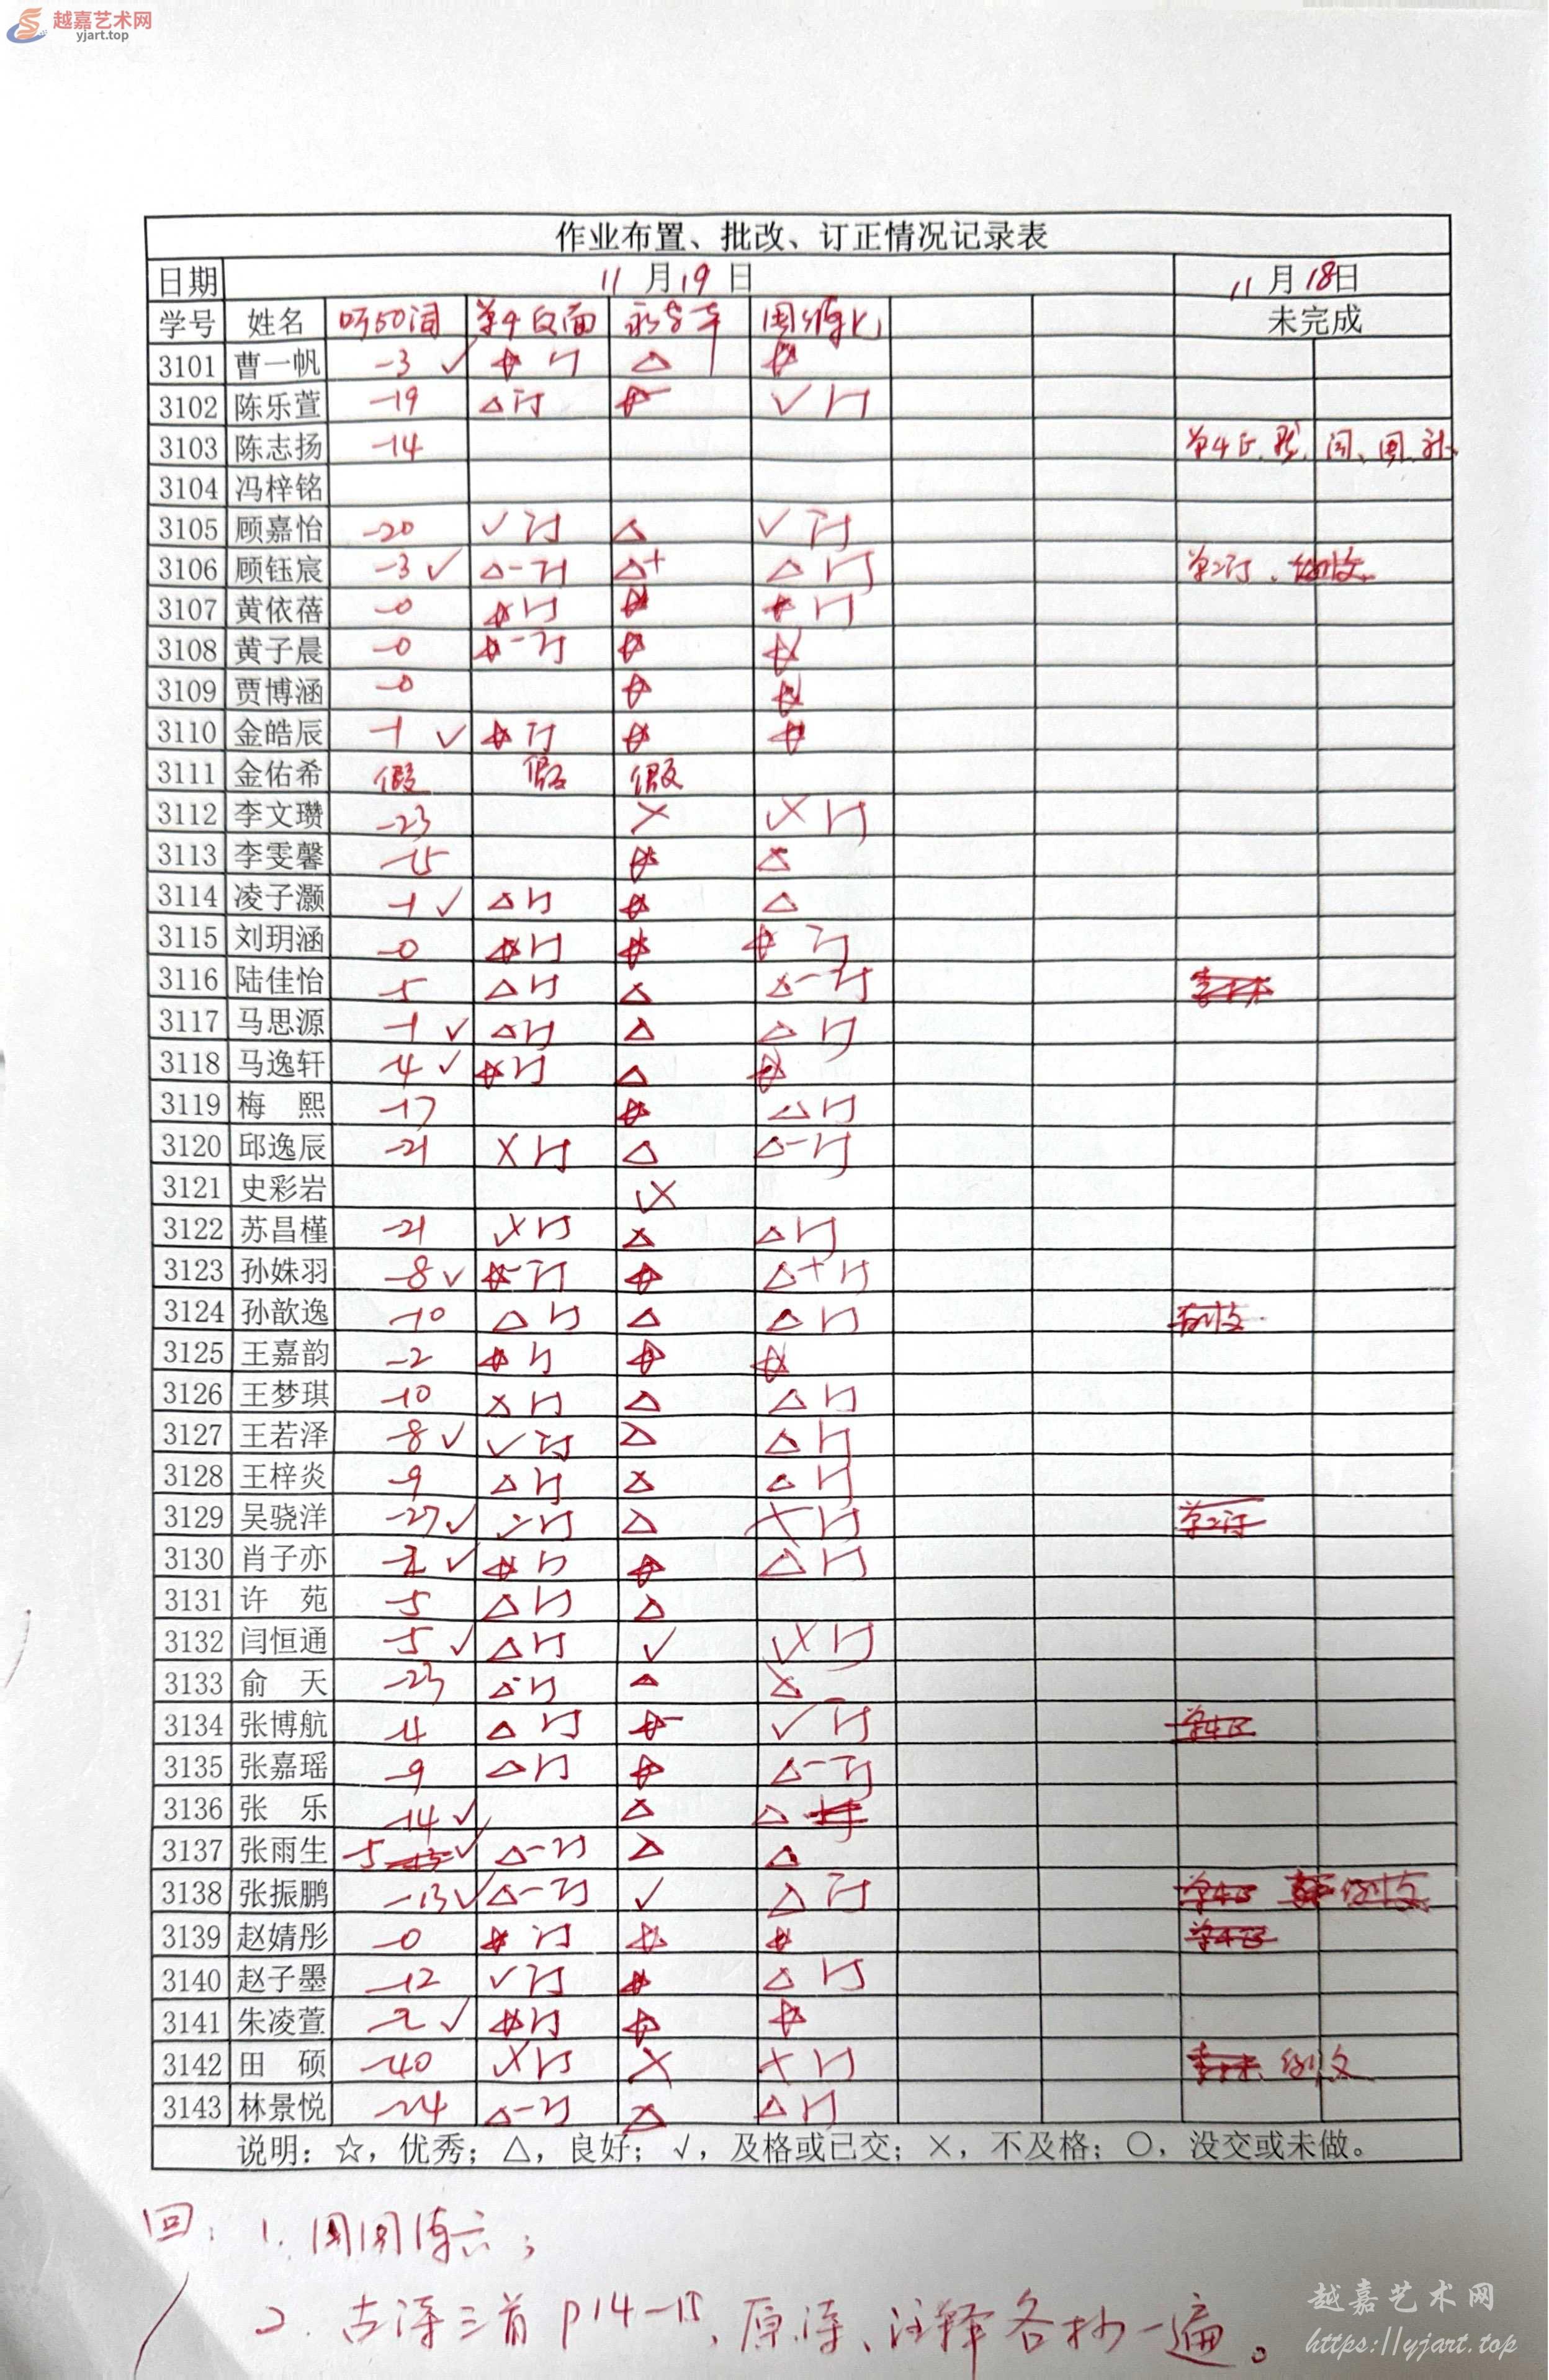 越嘉艺术网
yjart.top
作业布置、批改、订正情况记录表
日期 11月19日 11月18日
学号 姓名 听50词 单4反面 周练七 未完成
3101 曹一帆 -3 √ ☆ 订 △ ☆
3102 陈乐萱 -19 △订 ☆- √ 订
3103 陈志扬 -14
3104 冯梓铭
3105 顾嘉怡 -20 √ 订 △ √ 订
3106 顾钰宸 -3 √ △- 订 △+ △ 订 单2订、
3107 黄依蓓 -0 ☆ 订 ☆ ☆ 订
3108 黄子晨 -0 ☆- 订 ☆ ☆
3109 贾博涵 -0 ☆ ☆
3110 金皓辰 -1 √ ☆ 订 ☆ ☆
3111 金佑希 假 假 假
3112 李文瓒 -23 × × 订
3113 李雯馨 -15 ☆ △
3114 凌子灏 -1 √ △ 订 ☆ △
3115 刘玥涵 -0 ☆ 订 ☆ ☆ 订
3116 陆佳怡 -5 △ 订 △ △- 订
3117 马思源 -1 √ △ 订 △ △ 订
3118 马逸轩 -4 √ ☆ 订 △ ☆
3119 梅 熙 -17 ☆ △ 订
3120 邱逸辰 -21 × 订 △ △- 订
3121 史彩岩 ×
3122 苏昌槿 -21 × 订 △ △ 订
3123 孙姝羽 -8 √ ☆- 订 ☆ △+ 订
3124 孙歆逸 -10 △ 订 △ △ 订
3125 王嘉韵 -2 ☆ 订 ☆ ☆
3126 王梦琪 -10 △ 订 △ △ 订
3127 王若泽 -8 √ √ 订 △ △ 订
3128 王梓炎 -9 △ 订 △ △ 订
3129 吴骁洋 -27 √ 订 △ × 订 单2订
3130 肖子亦 -2 √ ☆ 订 ☆ △ 订
3131 许 苑 -5 △ 订 △
3132 闫恒通 -5 √ △ 订 √ × 订
3133 俞 天 -23 △- 订 △ △
3134 张博航 -4 △ 订 ☆- √ 订
3135 张嘉瑶 -9 △ 订 ☆ △- 订
3136 张 乐 -14 √ △ △
3137 张雨生 -5 √ △- 订 △ △
3138 张振鹏 -13 √ △- 订 √ △ 订
3139 赵婧彤 -0 ☆ 订 ☆ ☆
3140 赵子墨 -12 √ 订 ☆ △ 订
3141 朱凌萱 -2 √ ☆ 订 ☆ ☆
3142 田 硕 -40 × 订 × × 订
3143 林景悦 -24 △- 订 △ △ 订
说明：☆，优秀；△，良好；√，及格或已交；×，不及格；○，没交或未做。
回：1. 周六；
2. 古诗三首P14-15，原诗、注释各抄一遍。
越嘉艺术网
https://yjart.top